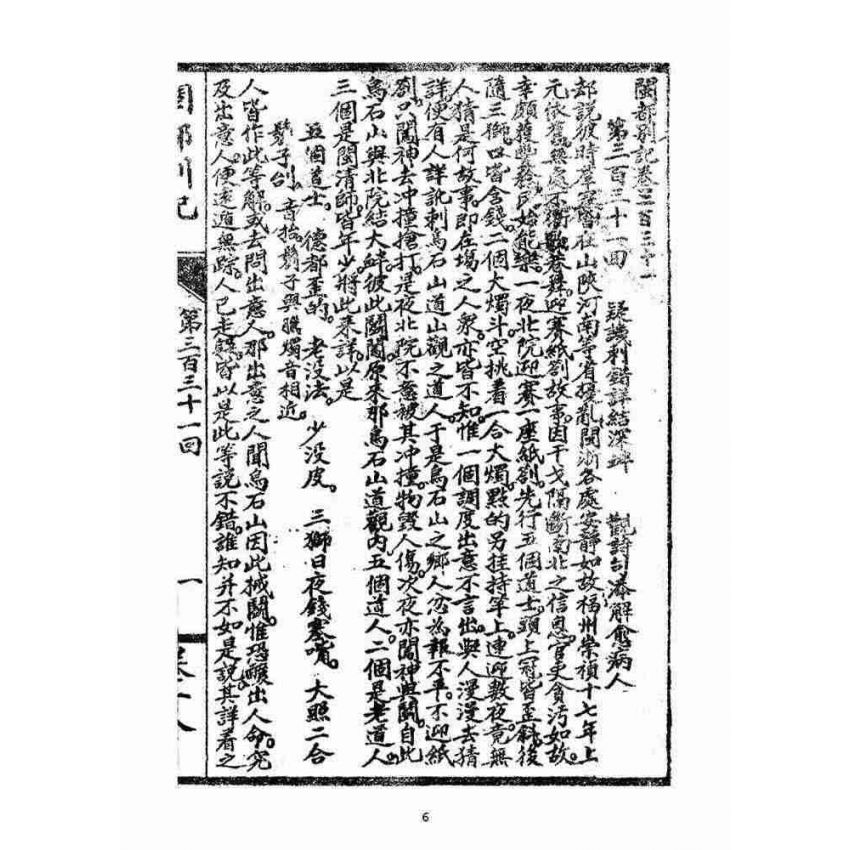 閩都別記卷三百三十一
第三百三十一回　疑譏刺錯詳結深　觀詩句湊解愈病人
却說彼時羣寇皆在山陝河南等省擾亂閩浙各處安靜如故福州崇禎十七年上
元依舊無處不衢歌巷舞迎賽紙劄故事因干戈隔斷南北之信息官吏貪汚如故
幸頗獲豐務民始能樂一夜北院迎賽一座紙劄先行五個道士頭上冠皆歪斜後
隨三獅口皆含錢二個大燭斗空挑着一合大燭點的另挂持竿上連迎數夜竟無
人猜是何故事即在場之人衆亦皆不知惟一個調度出意不言出與人漫漫去猜
詳便有人詳訛刺烏石山道山觀之道人于是烏石山之鄉人忿為報不平不迎紙
劄只閙神去冲撞搶打是夜北院不意被其冲撞物毀人傷次夜亦閙神與鬪自此
烏石山與北院結大衅彼此鬪鬨原來那烏石山道觀內五個道人二個是老道人
三個是閩清師皆年少將此來詳以是
五個道士。德都歪的。老没法。少没皮。三獅日夜錢塞嘴。大照二合
鬍子刣音抬鬍子與臘燭音相近。
人皆作此等解或去問出意人那出意之人聞烏石山因此械鬪惟恐釀出人命究
及出意人便遠遁無踪人已走皆以是此等說不錯誰知并不如是說其詳看之
閩都別記
第三百三十一回
一